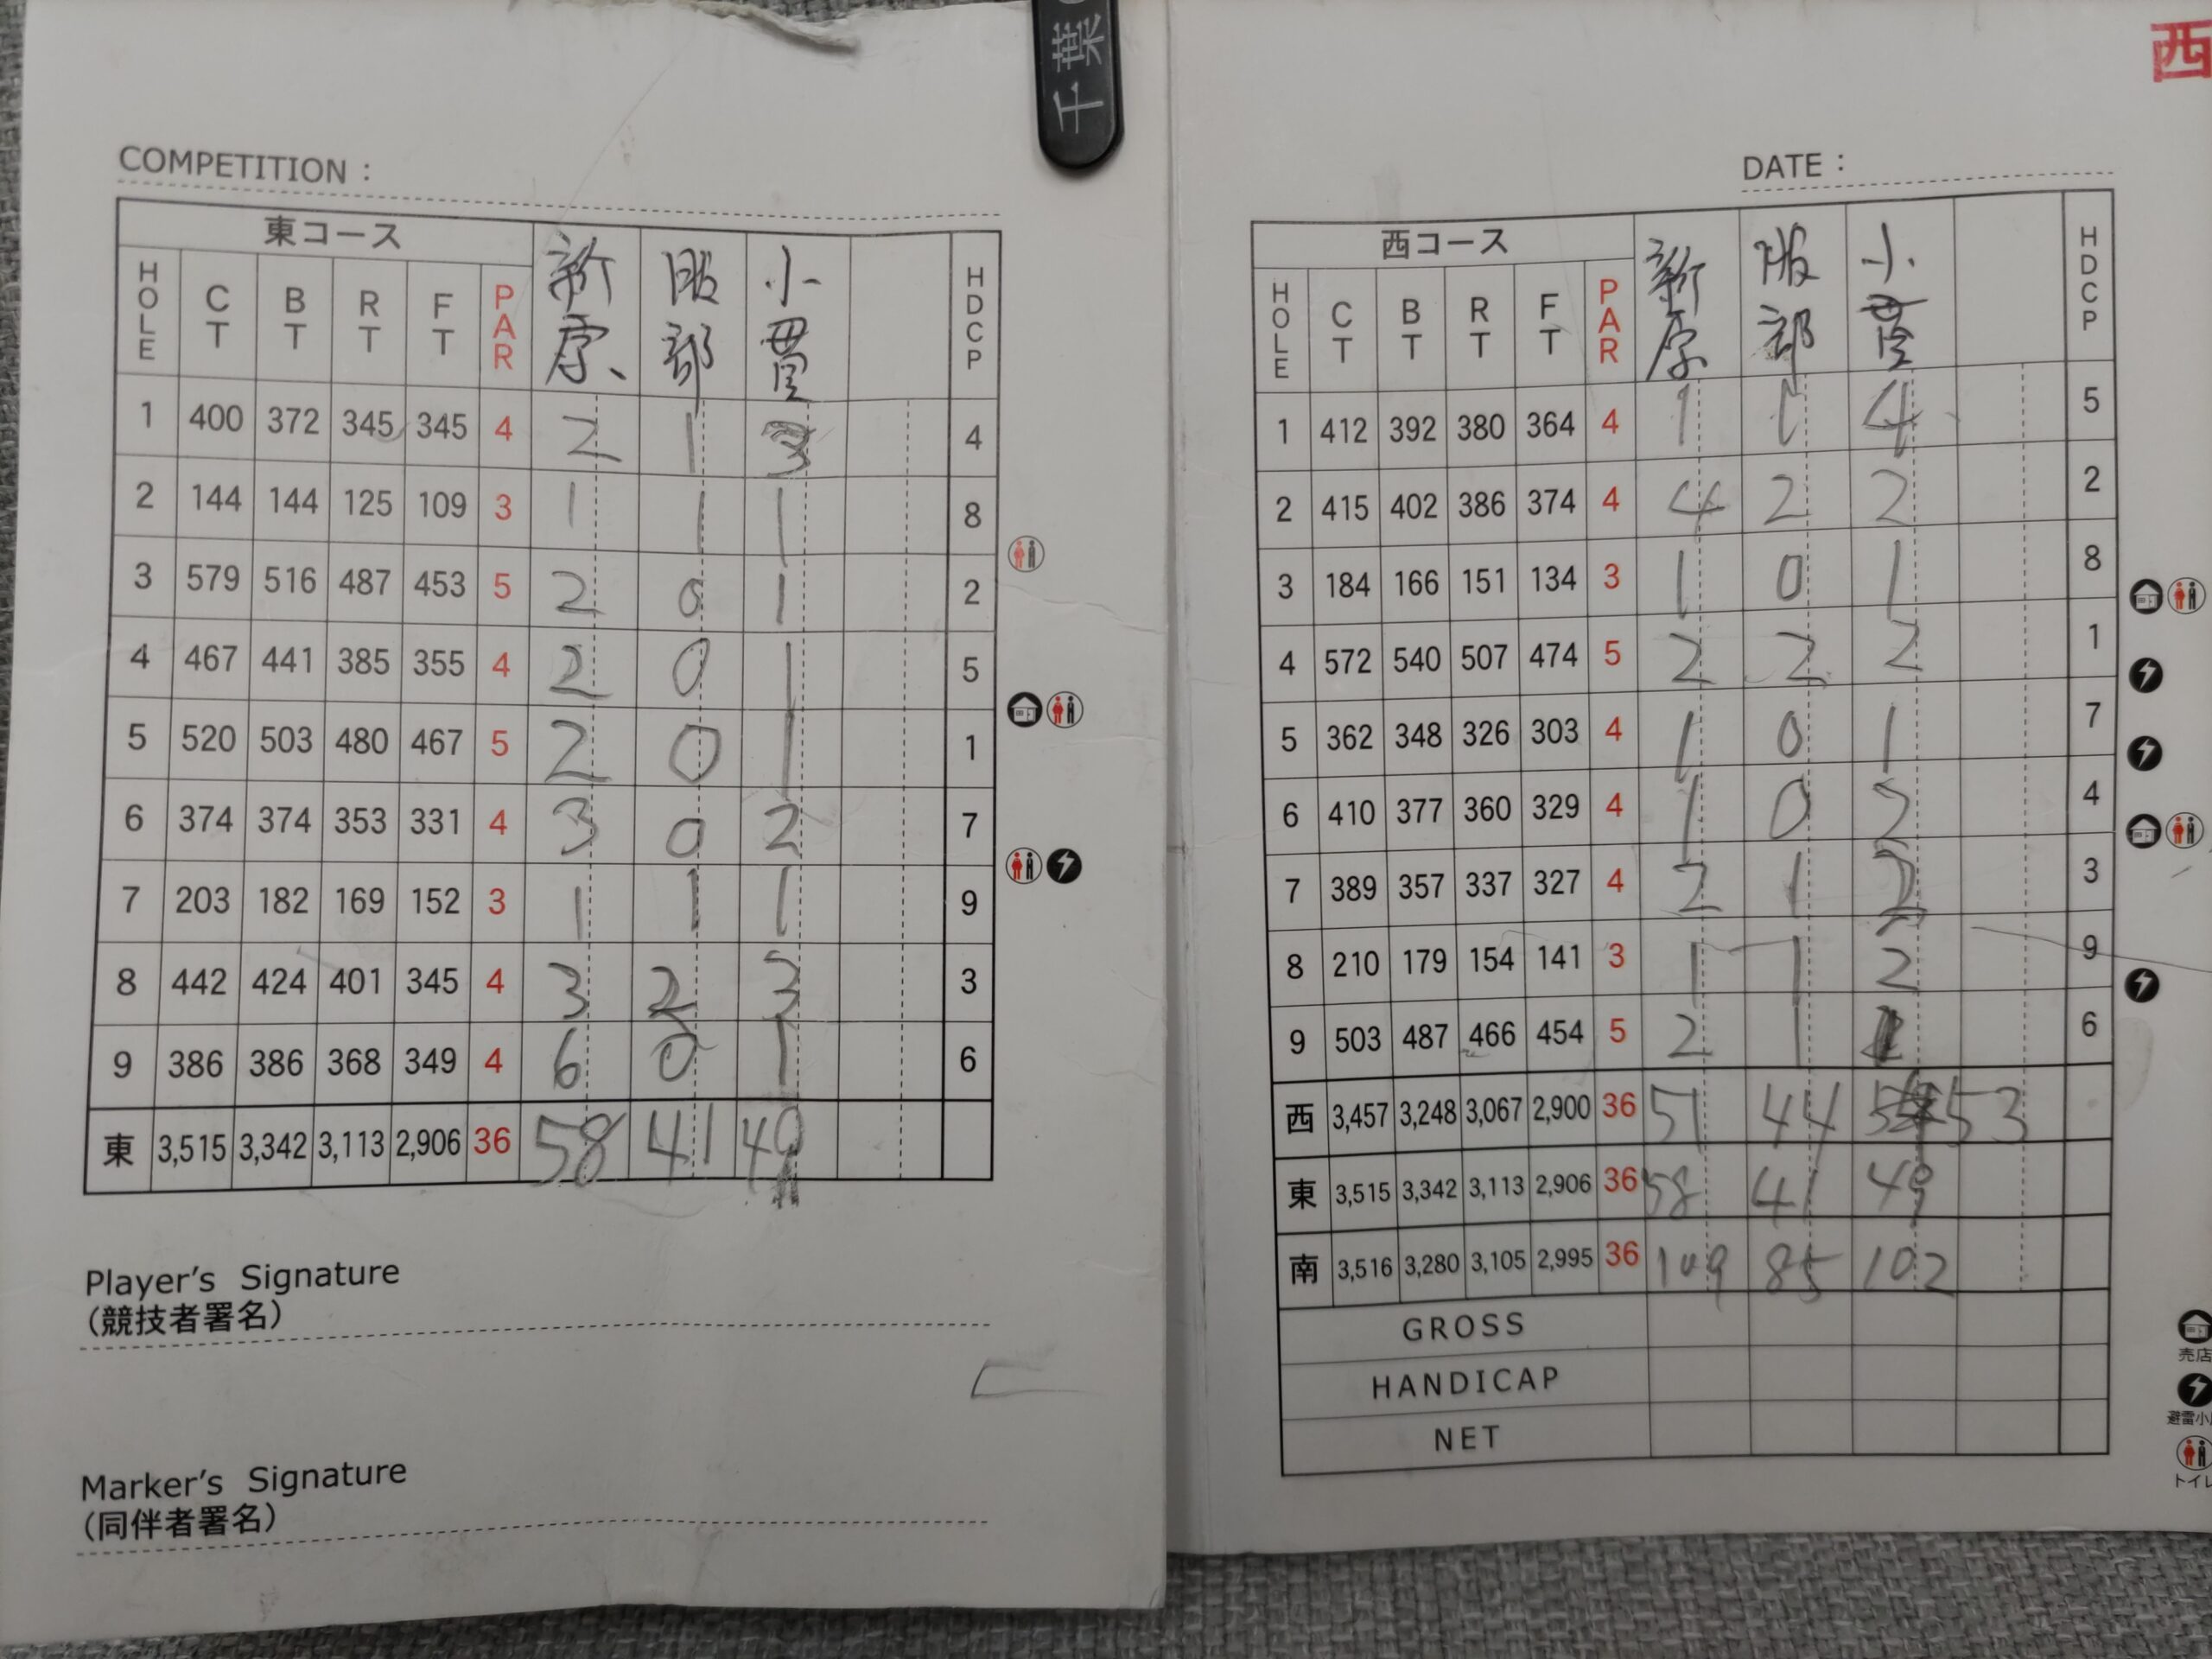 千葉
西
COMPETITION :
東コース
HOLE CT BT RT FT PAR 新原 服部 小貫 HDCP
1 400 372 345 345 4 2 1 3 4
2 144 144 125 109 3 1 1 1 8
3 579 516 487 453 5 2 0 1 2
4 467 441 385 355 4 2 0 1 5
5 520 503 480 467 5 2 0 1 1
6 374 374 353 331 4 3 0 2 7
7 203 182 169 152 3 1 1 1 9
8 442 424 401 345 4 3 2 3
9 386 386 368 349 4 6 0 1 6
東 3,515 3,342 3,113 2,906 36 58 41 49
Player's Signature
(競技者署名)
Marker's Signature
(同伴者署名)
DATE :
西コース
HOLE CT BT RT FT PAR 新原 服部 小貫 HDCP
1 412 392 380 364 4 1 1 4 5
2 415 402 386 374 4 4 2 2 2
3 184 166 151 134 3 1 0 1 8
4 572 540 507 474 5 2 2 2 1
5 362 348 326 303 4 1 0 1 7
6 410 377 360 329 4 1 0 2 4
7 389 357 337 327 4 2 1 2 3
8 210 179 154 141 3 1 1 2 9
9 503 487 466 454 5 2 1 6
西 3,457 3,248 3,067 2,900 36 51 44 53
東 3,515 3,342 3,113 2,906 36 58 41 49
南 3,516 3,280 3,105 2,995 36 109 85 102
GROSS
HANDICAP
NET
売店
避雷小
トイレ